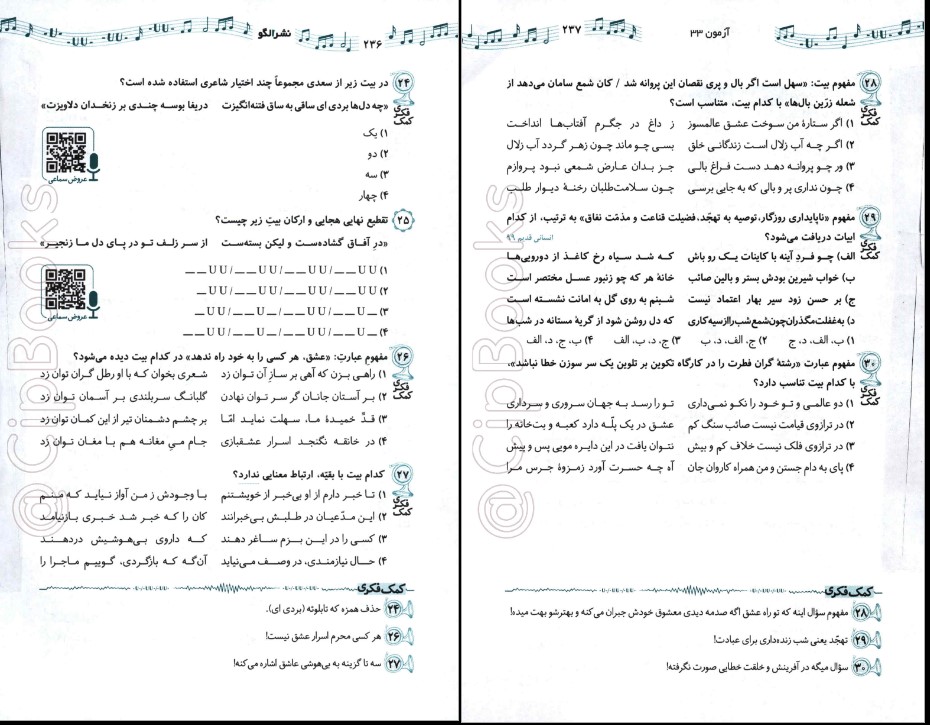 آزمون ۳۳
۲۳۷
۲۸ مفهوم بیت: «سهل است اگر بال و پری نقصان این پروانه شد / کان شمع سامان می‌دهد از
شعله زرّین بال‌ها» با کدام بیت، متناسب است؟
۱) اگر ستارهٔ من سوخت عشق عالمسوز ز داغ در جگرم آفتاب‌ها انداخت
۲) اگر چه آب زلال است زندگانی خلق بسی چو ماند چون زهر گردد آب زلال
۳) ور چو پروانه دهد دست فراغ بالی جز بدان عارض شمعی نبود پروازم
۴) چون نداری پر و بالی که به جایی برسی چون سلامت‌طلبان رخنهٔ دیوار طلب
کمک فکری
۲۹ مفهوم «ناپایداری روزگار،توصیه به تهجّد،فضیلت قناعت و مذمّت نفاق» به ترتیب، از کدام
ابیات دریافت می‌شود؟
انسانی قدیم ۹۹
الف) چو فردِ آینه با کاینات یک رو باش که شد سیاه رخ کاغذ از دورویی‌ها
ب) خواب شیرین بودش بستر و بالین صائب خانهٔ هر که چو زنبور عسل مختصر است
ج) بر حسن زود سیر بهار اعتماد نیست شبنم به روی گل به امانت نشسته است
د) به‌غفلت‌مگذران‌چون‌شمع‌شب‌را‌از‌سیه‌کاری که دل روشن شود از گریهٔ مستانه در شب‌ها
۱) ب، الف، د، ج ۲) ج، الف، د، ب ۳) ج، د، ب، الف ۴) ب، ج، د، الف
کمک فکری
۳۰ مفهوم عبارت «رشته گران فطرت را در کارگاه تکوین بر تلوین یک سر سوزن خطا نباشد»،
با کدام بیت تناسب دارد؟
۱) دو عالمی و تو خود را نکو نمی‌داری تو را رسد به جهان سروری و سرداری
۲) در ترازوی قیامت نیست صائب سنگ کم عشق در یک پلّه دارد کعبه و بت‌خانه را
۳) در ترازوی فلک نیست خلاف کم و بیش نتوان یافت در این دایره مویی پس و پیش
۴) پای به دام جستن و من همراه کاروان جان آه چه حسرت آورد زمزوهٔ جرس مرا
کمک فکری
کمک‌فکری
۲۸ مفهوم سؤال اینه که تو راه عشق اگه صدمه دیدی معشوق خودش جبران می‌کنه و بهترشو بهت میده!
۲۹ تهجّد یعنی شب زنده‌داری برای عبادت!
۳۰ سؤال میگه در آفرینش و خلقت خطایی صورت نگرفته!
نشرالگو
۲۳۶
۲۴ در بیت زیر از سعدی مجموعاً چند اختیار شاعری استفاده شده است؟
«چه دل‌ها بردی ای ساقی به ساق فتنه‌انگیزت دریغا بوسه چندی بر زنخدان دلاویزت»
کمک فکری
۱) یک
۲) دو
۳) سه
۴) چهار
عروض‌سماعی
۲۵ تقطیع نهایی هجایی و ارکان بیتِ زیر چیست؟
«درِ آفاق گشاده‌ست و لیکن بسته‌ست از سر زلف تو در پای دل ما زنجیر»
۱) U U _ _ / U U _ _ / U U _ _ / U U _ _
۲) U U _ _ / U U _ _ / U U _ _ / U U _
۳) _ U _ _ / U U _ _ / U U _ _ / U U _
۴) _ U _ _ / U U _ _ / _ U _ _ / U U _ _
عروض‌سماعی
۲۶ مفهوم عبارتِ: «عشق، هر کسی را به خود راه ندهد» در کدام بیت دیده می‌شود؟
۱) راهی بزن که آهی بر سازِ آن توان زد شعری بخوان که با او رطل گران توان زد
۲) بر آستان جانان گر سر توان نهادن گلبانگ سربلندی بر آسمان توان زد
۳) قدّ خمیدهٔ ما، سهلت نماید امّا بر چشم دشمنان تیر از این کمان توان زد
۴) در خانقه نگنجد اسرار عشقبازی جام میِ مغانه هم با مغان توان زد
کمک فکری
۲۷ کدام بیت با بقیّه، ارتباط معنایی ندارد؟
۱) تا خبر دارم از او بی‌خبر از خویشتنم با وجودش ز من آواز نیاید که منم
۲) این مدّعیان در طلبش بی‌خبرانند کان را که خبر شد خبری بازنیامد
۳) کسی را در این بزم ساغر دهند که داروی بی‌هوشیش دردهند
۴) حال نیازمندی، در وصف می‌نیاید آن‌گه که بازگردی، گوییم ماجرا را
کمک فکری
کمک‌فکری
۲۴ حذف همزه که تابلوئه (بردی ای).
۲۶ هر کسی محرم اسرار عشق نیست!
۲۷ سه تا گزینه به بی‌هوشی عاشق اشاره می‌کنه!
@CipBooks
@CipBooks